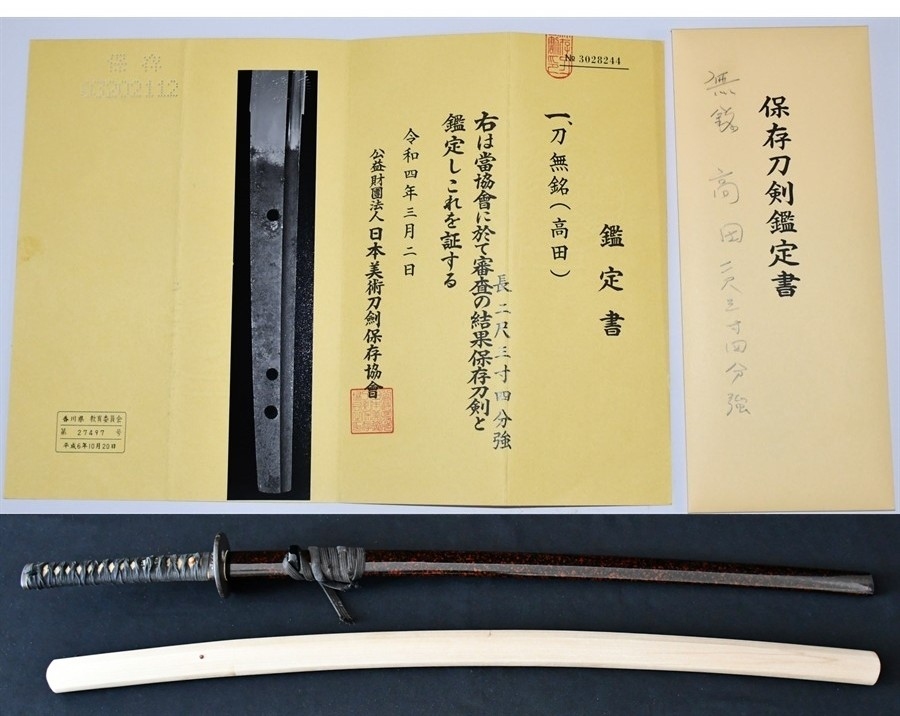 № 3028244
鑑定書
一、刀 無銘(高田)
長二尺三寸四分強
右は當協會に於て審査の結果保存刀剣と
鑑定しこれを証する
令和四年三月二日
公益財團法人 日本美術刀劍保存協會
保存
03202112
香川県 教育委員会
第 27497 号
平成6年10月20日
保存刀剣鑑定書
無銘 高田 二尺三寸四分強